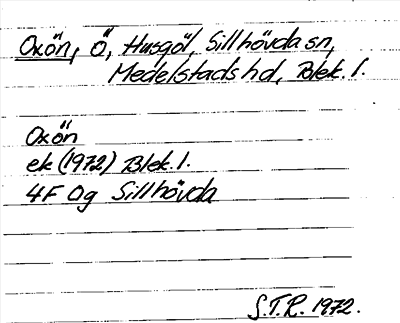 Oxön, Ö, Husgöl, Sillhövda sn,
Medelstads hd, Blek. l.
Oxön
ek (1972) Blek. l.
4F 0g Sillhövda
S.T.R. 1972.